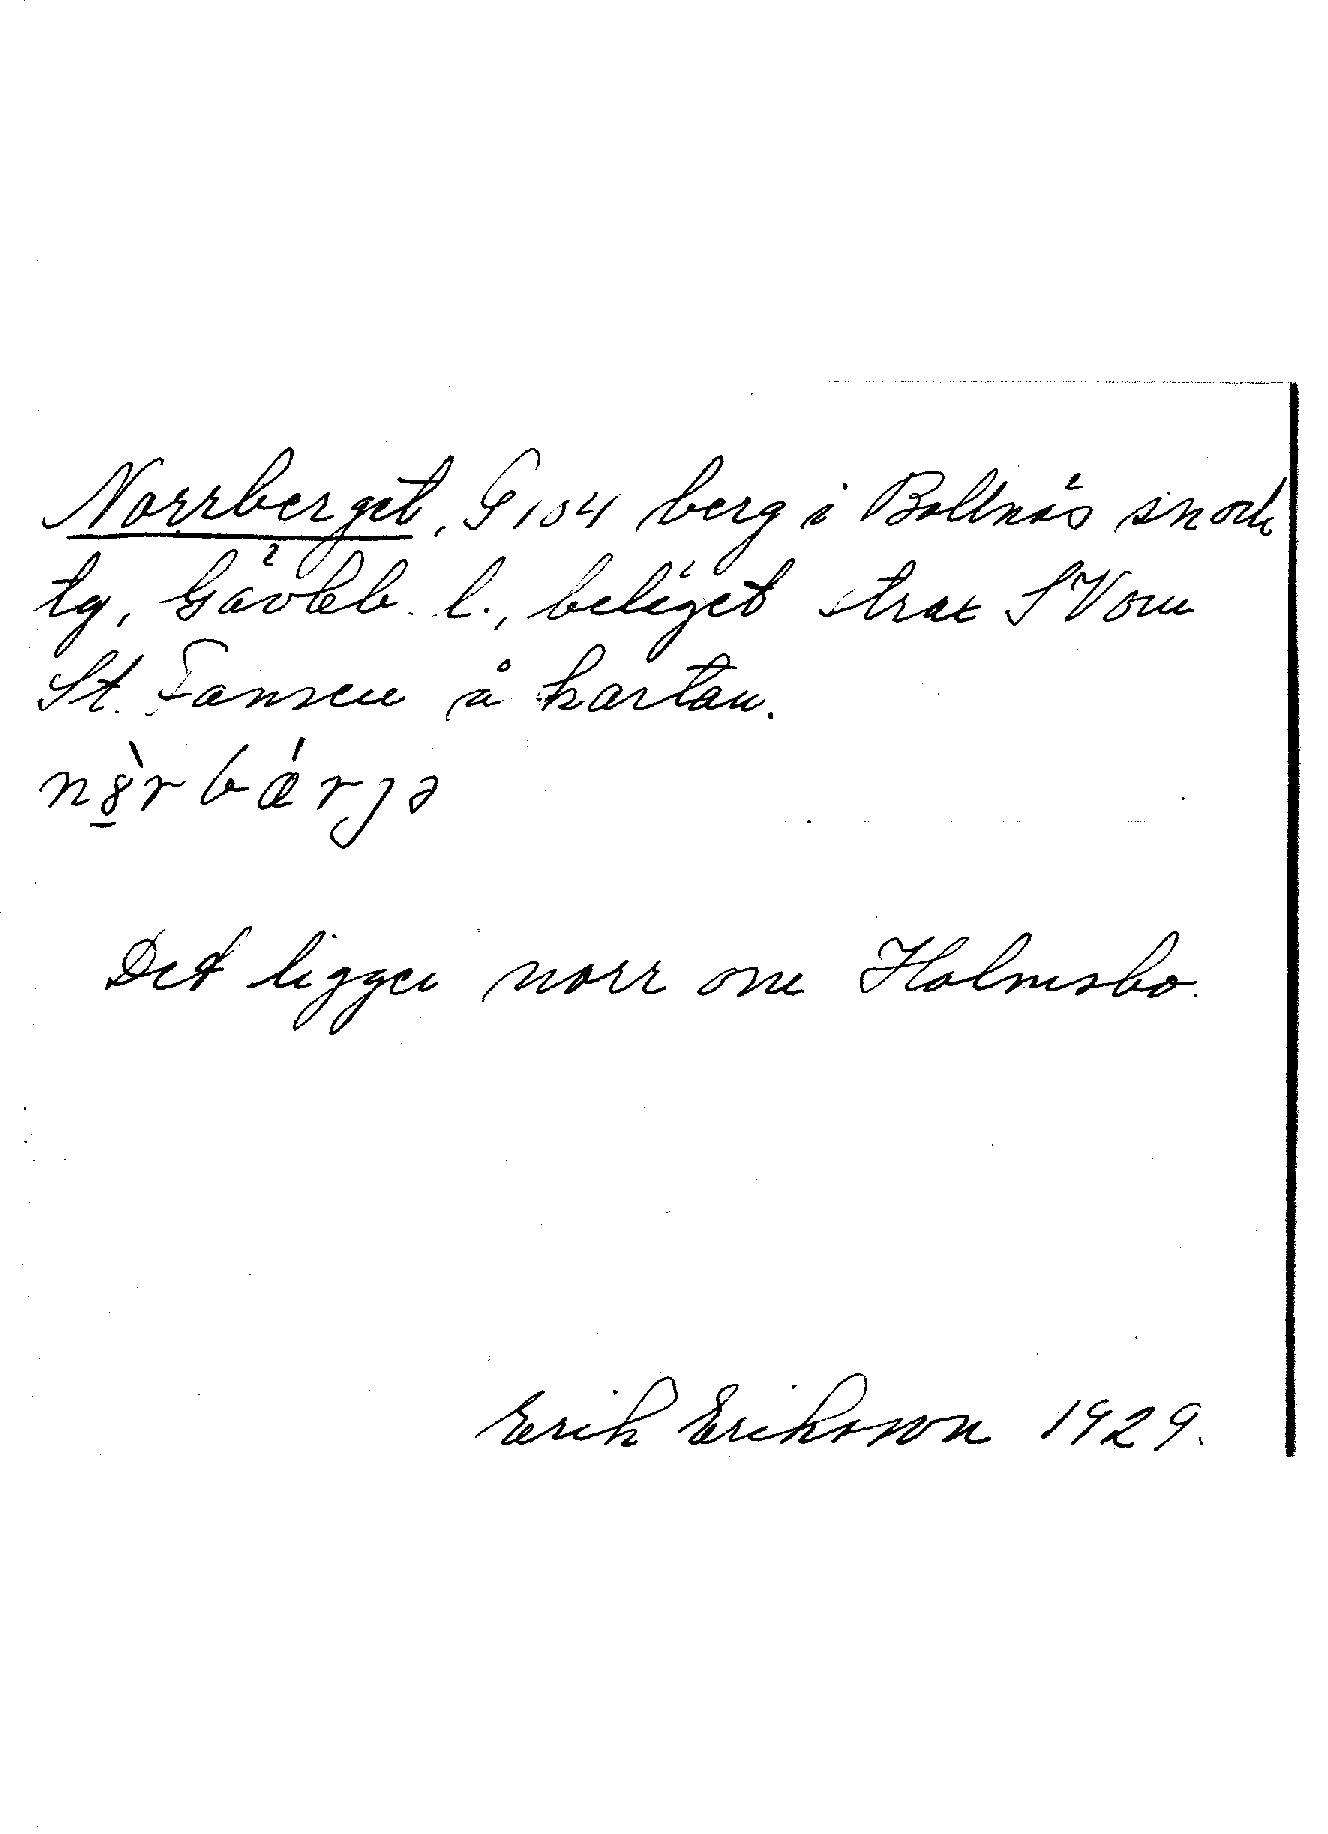 Norrberget, G 104 berg i Bollnäs sn och
tg, Gävleb. l., beläget strax SV om
St. Fansen å kartan.
nȣ̀rbǽrjə
Det ligger norr om Holmsbo.
Erik Eriksson 1929.